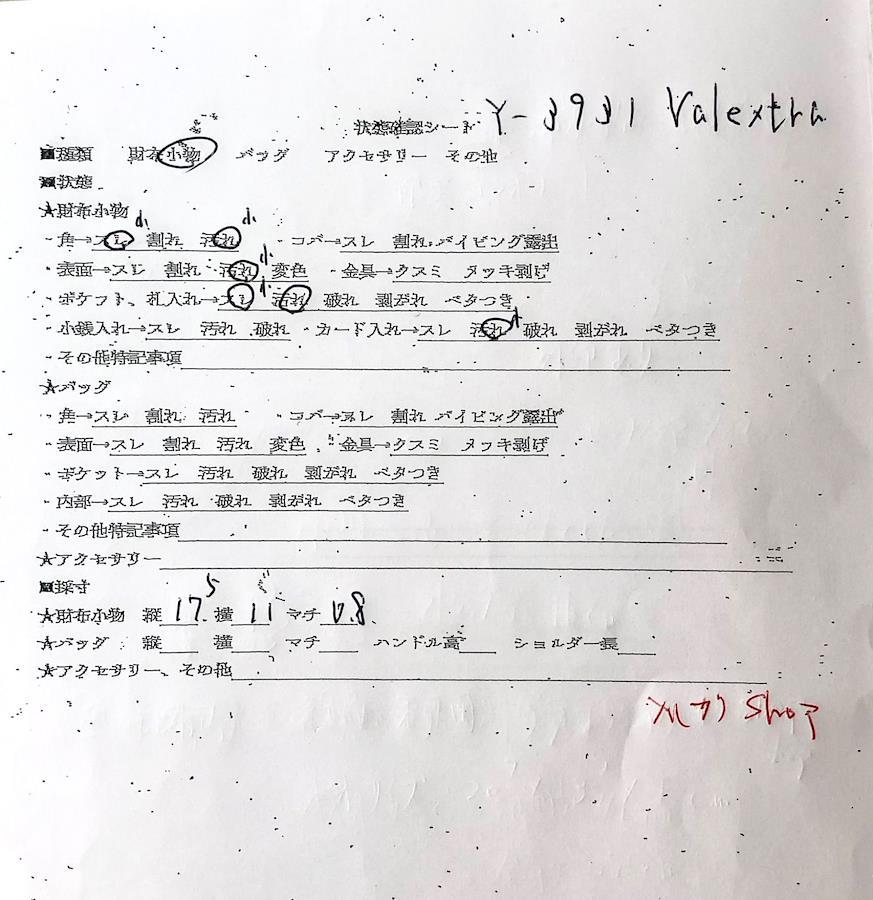 状態確認シート Y-3931 Valextra
■種類 財布小物 バッグ アクセサリー その他
■状態
★財布小物
小 小
・角→スレ 割れ 汚れ ・コバ→スレ 割れ パイピング露出
小
・表面→スレ 割れ 汚れ 変色 ・金具→クスミ メッキ剥げ
小
・ポケット、札入れ→スレ 汚れ 破れ 剥がれ ベタつき
小
・小銭入れ→スレ 汚れ 破れ ・カード入れ→スレ 汚れ 破れ 剥がれ ベタつき
・その他特記事項
★バッグ
・角→スレ 割れ 汚れ ・コバ→スレ 割れ パイピング露出
・表面→スレ 割れ 汚れ 変色 ・金具→クスミ メッキ剥げ
・ポケット→スレ 汚れ 破れ 剥がれ ベタつき
・内部→スレ 汚れ 破れ 剥がれ ベタつき
・その他特記事項
★アクセサリー
■採寸
★財布小物 縦 17.5 横 11 マチ 0.8
★バッグ 縦 横 マチ ハンドル高 ショルダー長
★アクセサリー、その他
Shop